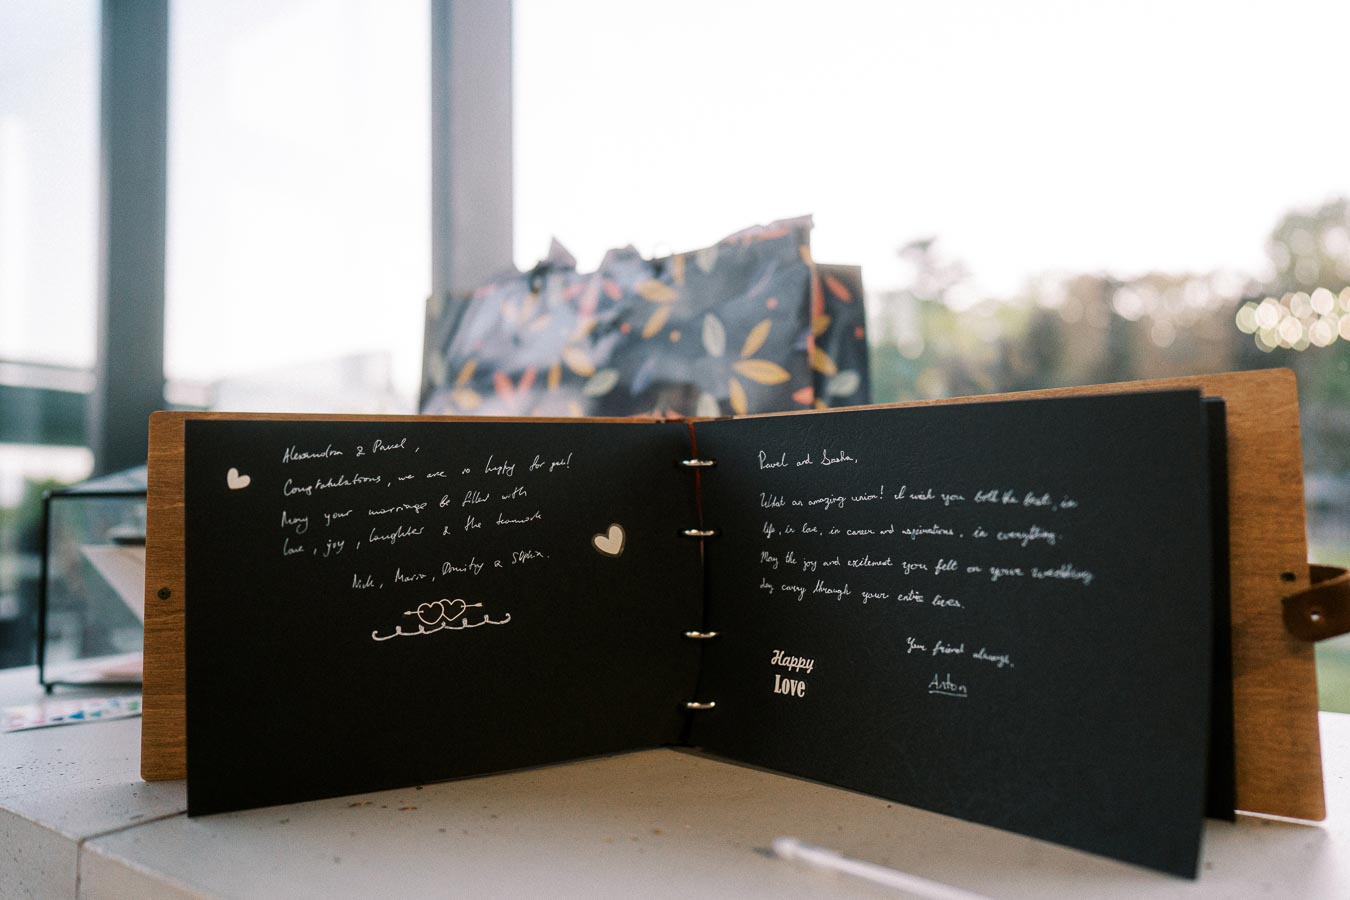 Alexandra & Pavel,
Congratulations, we are so happy for you!
May your marriage be filled with
love, joy, laughter & the teamwork
Nick, Maria, Dmitry & Sophia.
Pavel and Sasha,
What an amazing union! I wish you both the best, in
life, in love, in career and aspirations, in everything.
May the joy and excitement you felt on your wedding
day carry through your entire lives.
Your friend always,
Anton
Happy
Love